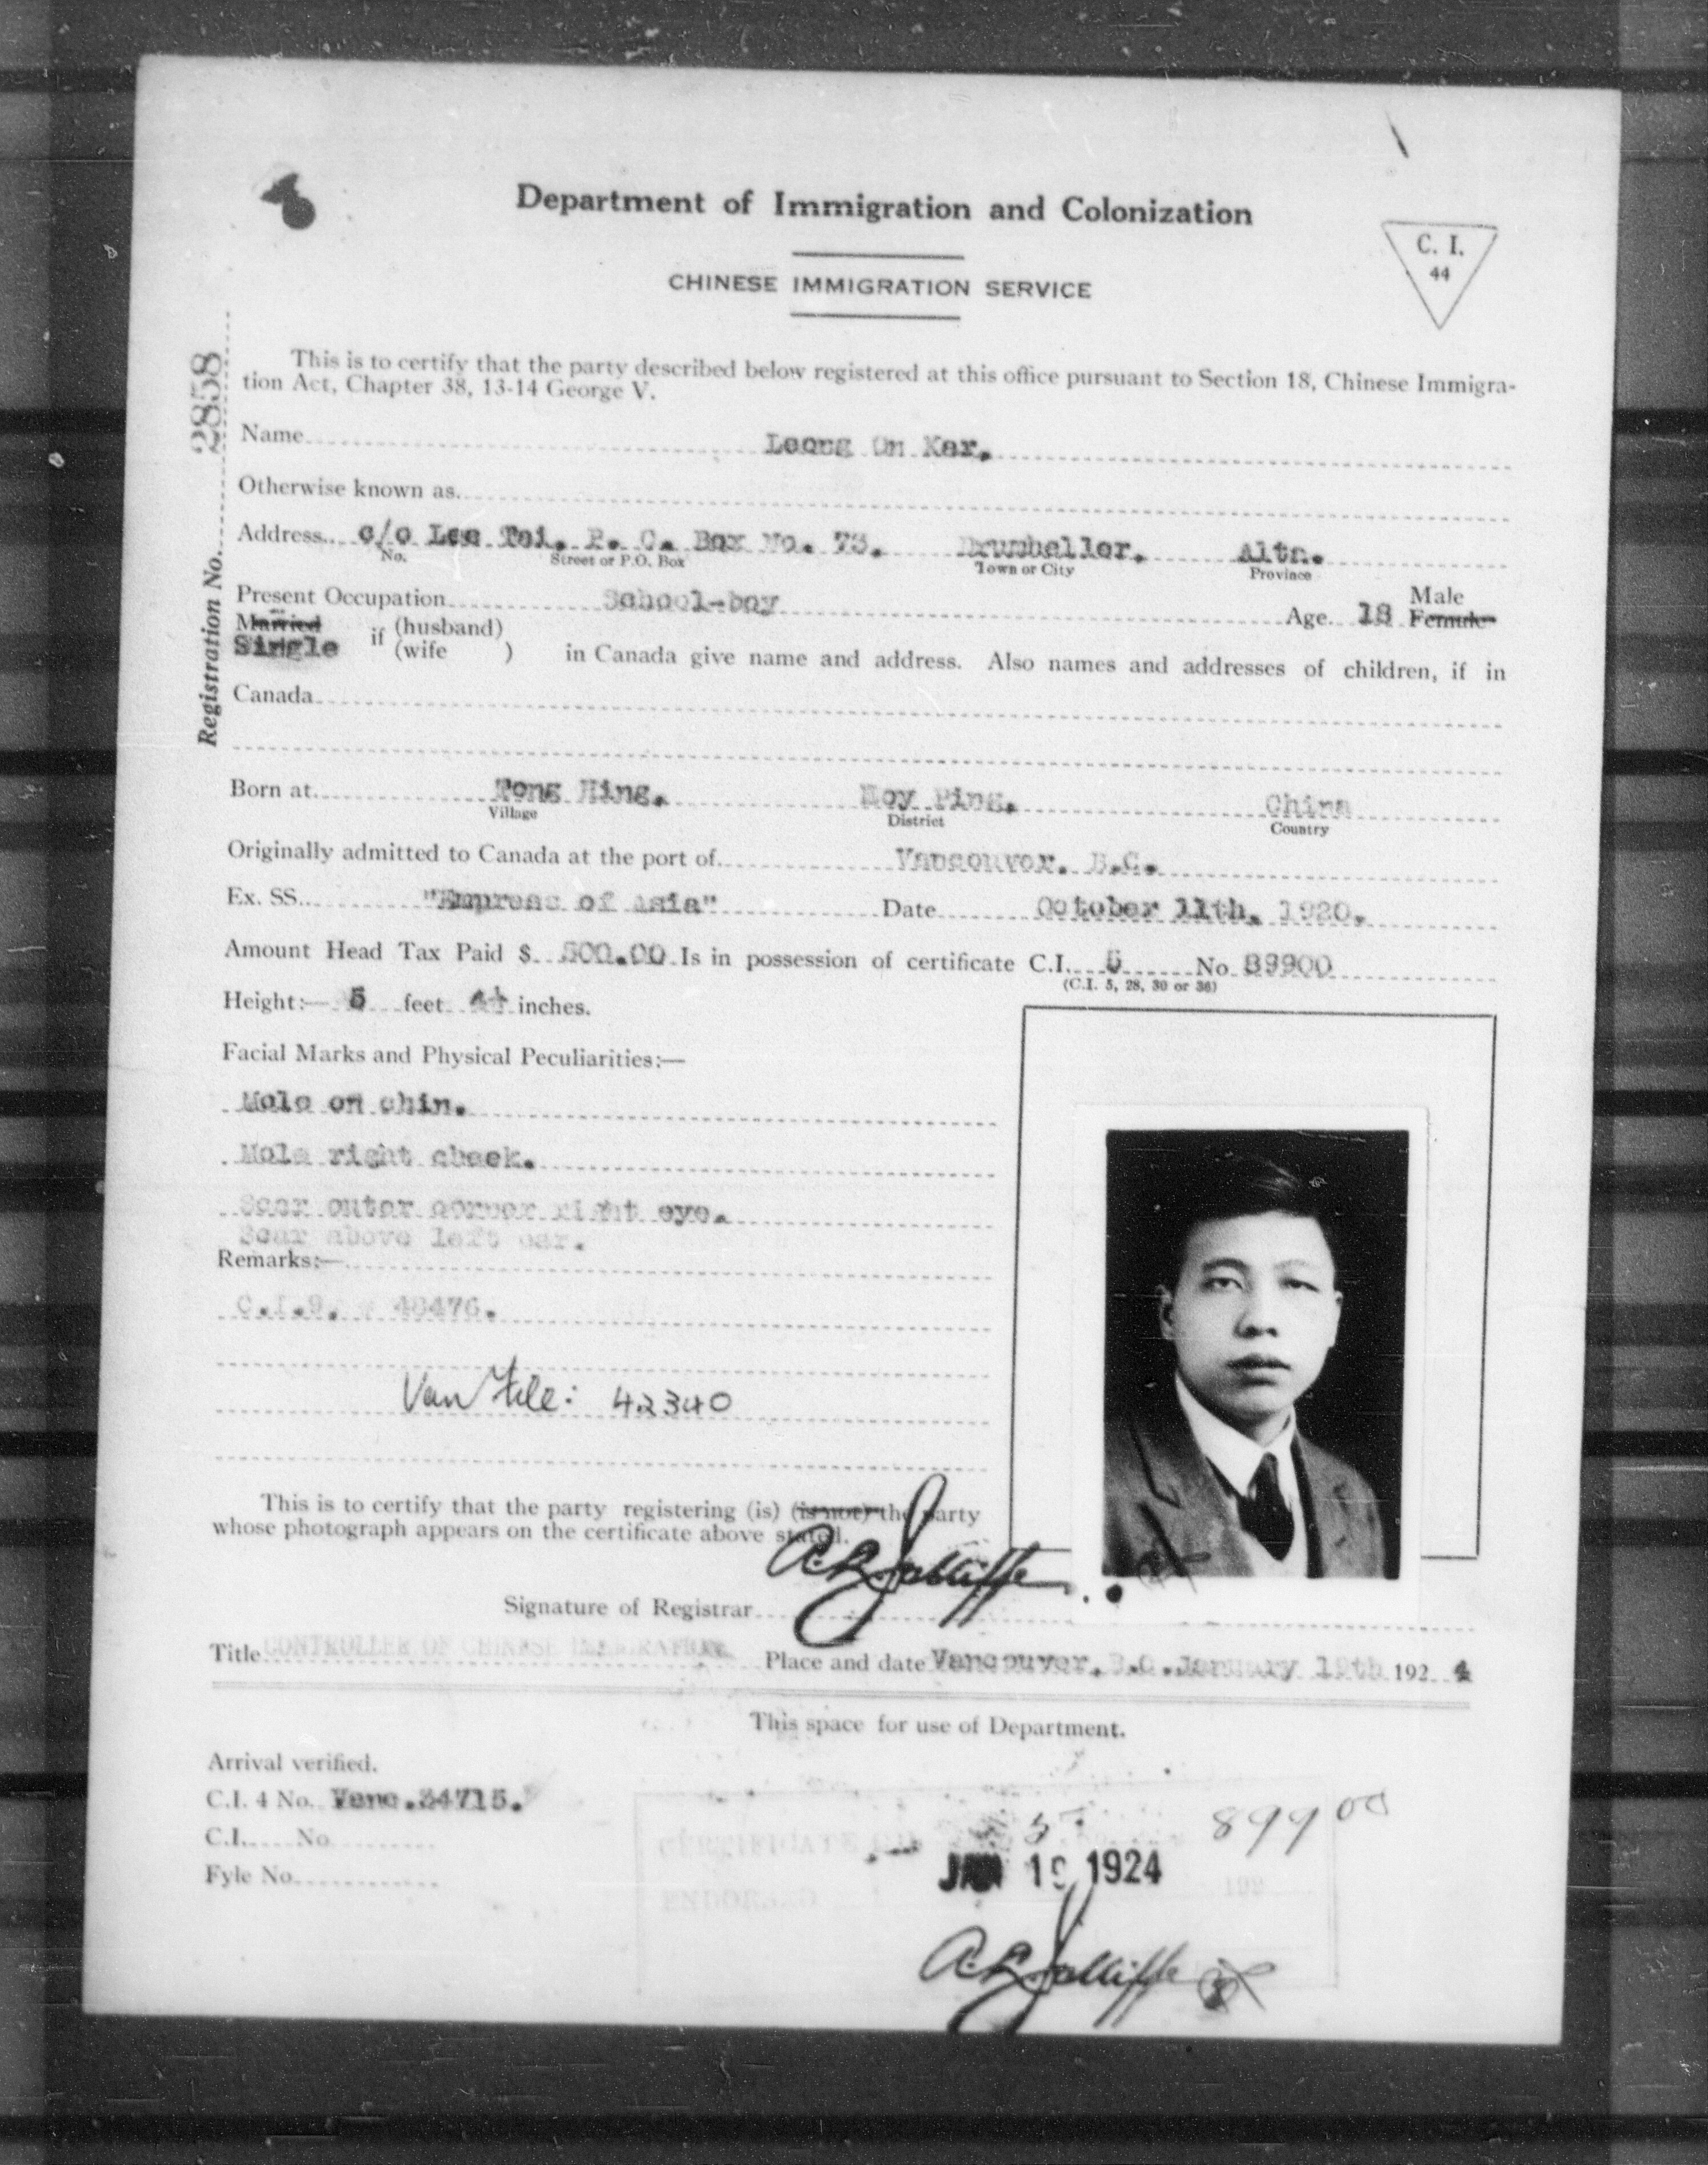 Department of Immigration and Colonization
CHINESE IMMIGRATION SERVICE
C. I.
44
Registration No. 2858
This is to certify that the party described below registered at this office pursuant to Section 18, Chinese Immigra-
tion Act, Chapter 38, 13-14 George V.
Name Leong On Kar.
Otherwise known as
Address c/o Lee Toi. P. O. Box No. 73. Drumheller. Alta.
No. Street or P.O. Box Town or City Province
Present Occupation School-boy Age 18 Male Female
Married
Single if (husband) (wife ) in Canada give name and address. Also names and addresses of children, if in
Canada
Born at Tong Hing. Hoy Ping. China
Village District Country
Originally admitted to Canada at the port of Vancouver. B.C.
Ex. SS. "Empress of Asia" Date October 11th. 1920.
Amount Head Tax Paid $ 500.00 Is in possession of certificate C.I. 5 No 89900
(C.I. 5, 28, 30 or 36)
Height:— 5 feet 4½ inches.
Facial Marks and Physical Peculiarities:—
Mole on chin.
Mole right cheek.
Scar outer corner right eye.
Scar above left ear.
Remarks:—
C.I.9. 48476.
Van File: 42340
This is to certify that the party registering (is) (is not) the party
whose photograph appears on the certificate above stated.
Signature of Registrar A.L. Jolliffe
Title CONTROLLER OF CHINESE IMMIGRATION Place and date Vancouver. B.C. January 19th 1924
This space for use of Department.
Arrival verified.
C.I. 4 No. Vanc. 34715.
C.I. No
Fyle No
CERTIFICATE C.I. 5 89900
ENDORSED JAN 19 1924 192
A.L. Jolliffe